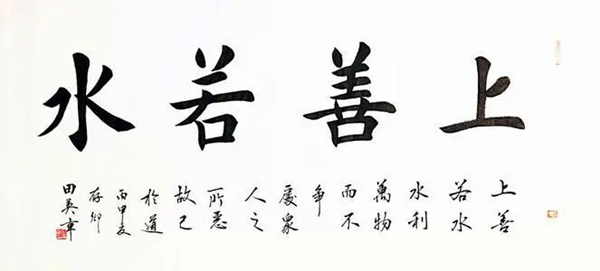 上善若水
上善
若水
水利
萬物
而不
争
處衆
人之
所惡
故已
於道
丙申夏
存卿
田英章